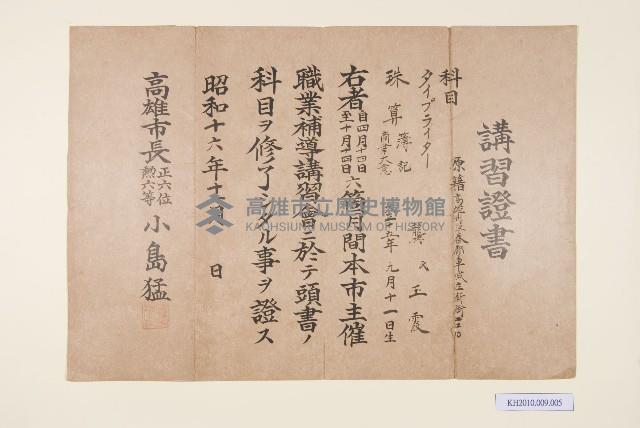 講習證書
原籍高雄州
科目
タイプライター
珠算 簿記
商業大意
龔 氏 玉 霞
九月十一日生
右者自四月十四日至十月十四日六箇月間本市主催
職業補導講習會ニ於テ頭書ノ
科目ヲ修了シタル事ヲ證ス
昭和十六年十月 日
高雄市長正六位勲六等 小島猛
高雄市立歷史博物館
KAOHSIUNG MUSEUM OF HISTORY
KH2010.009.005